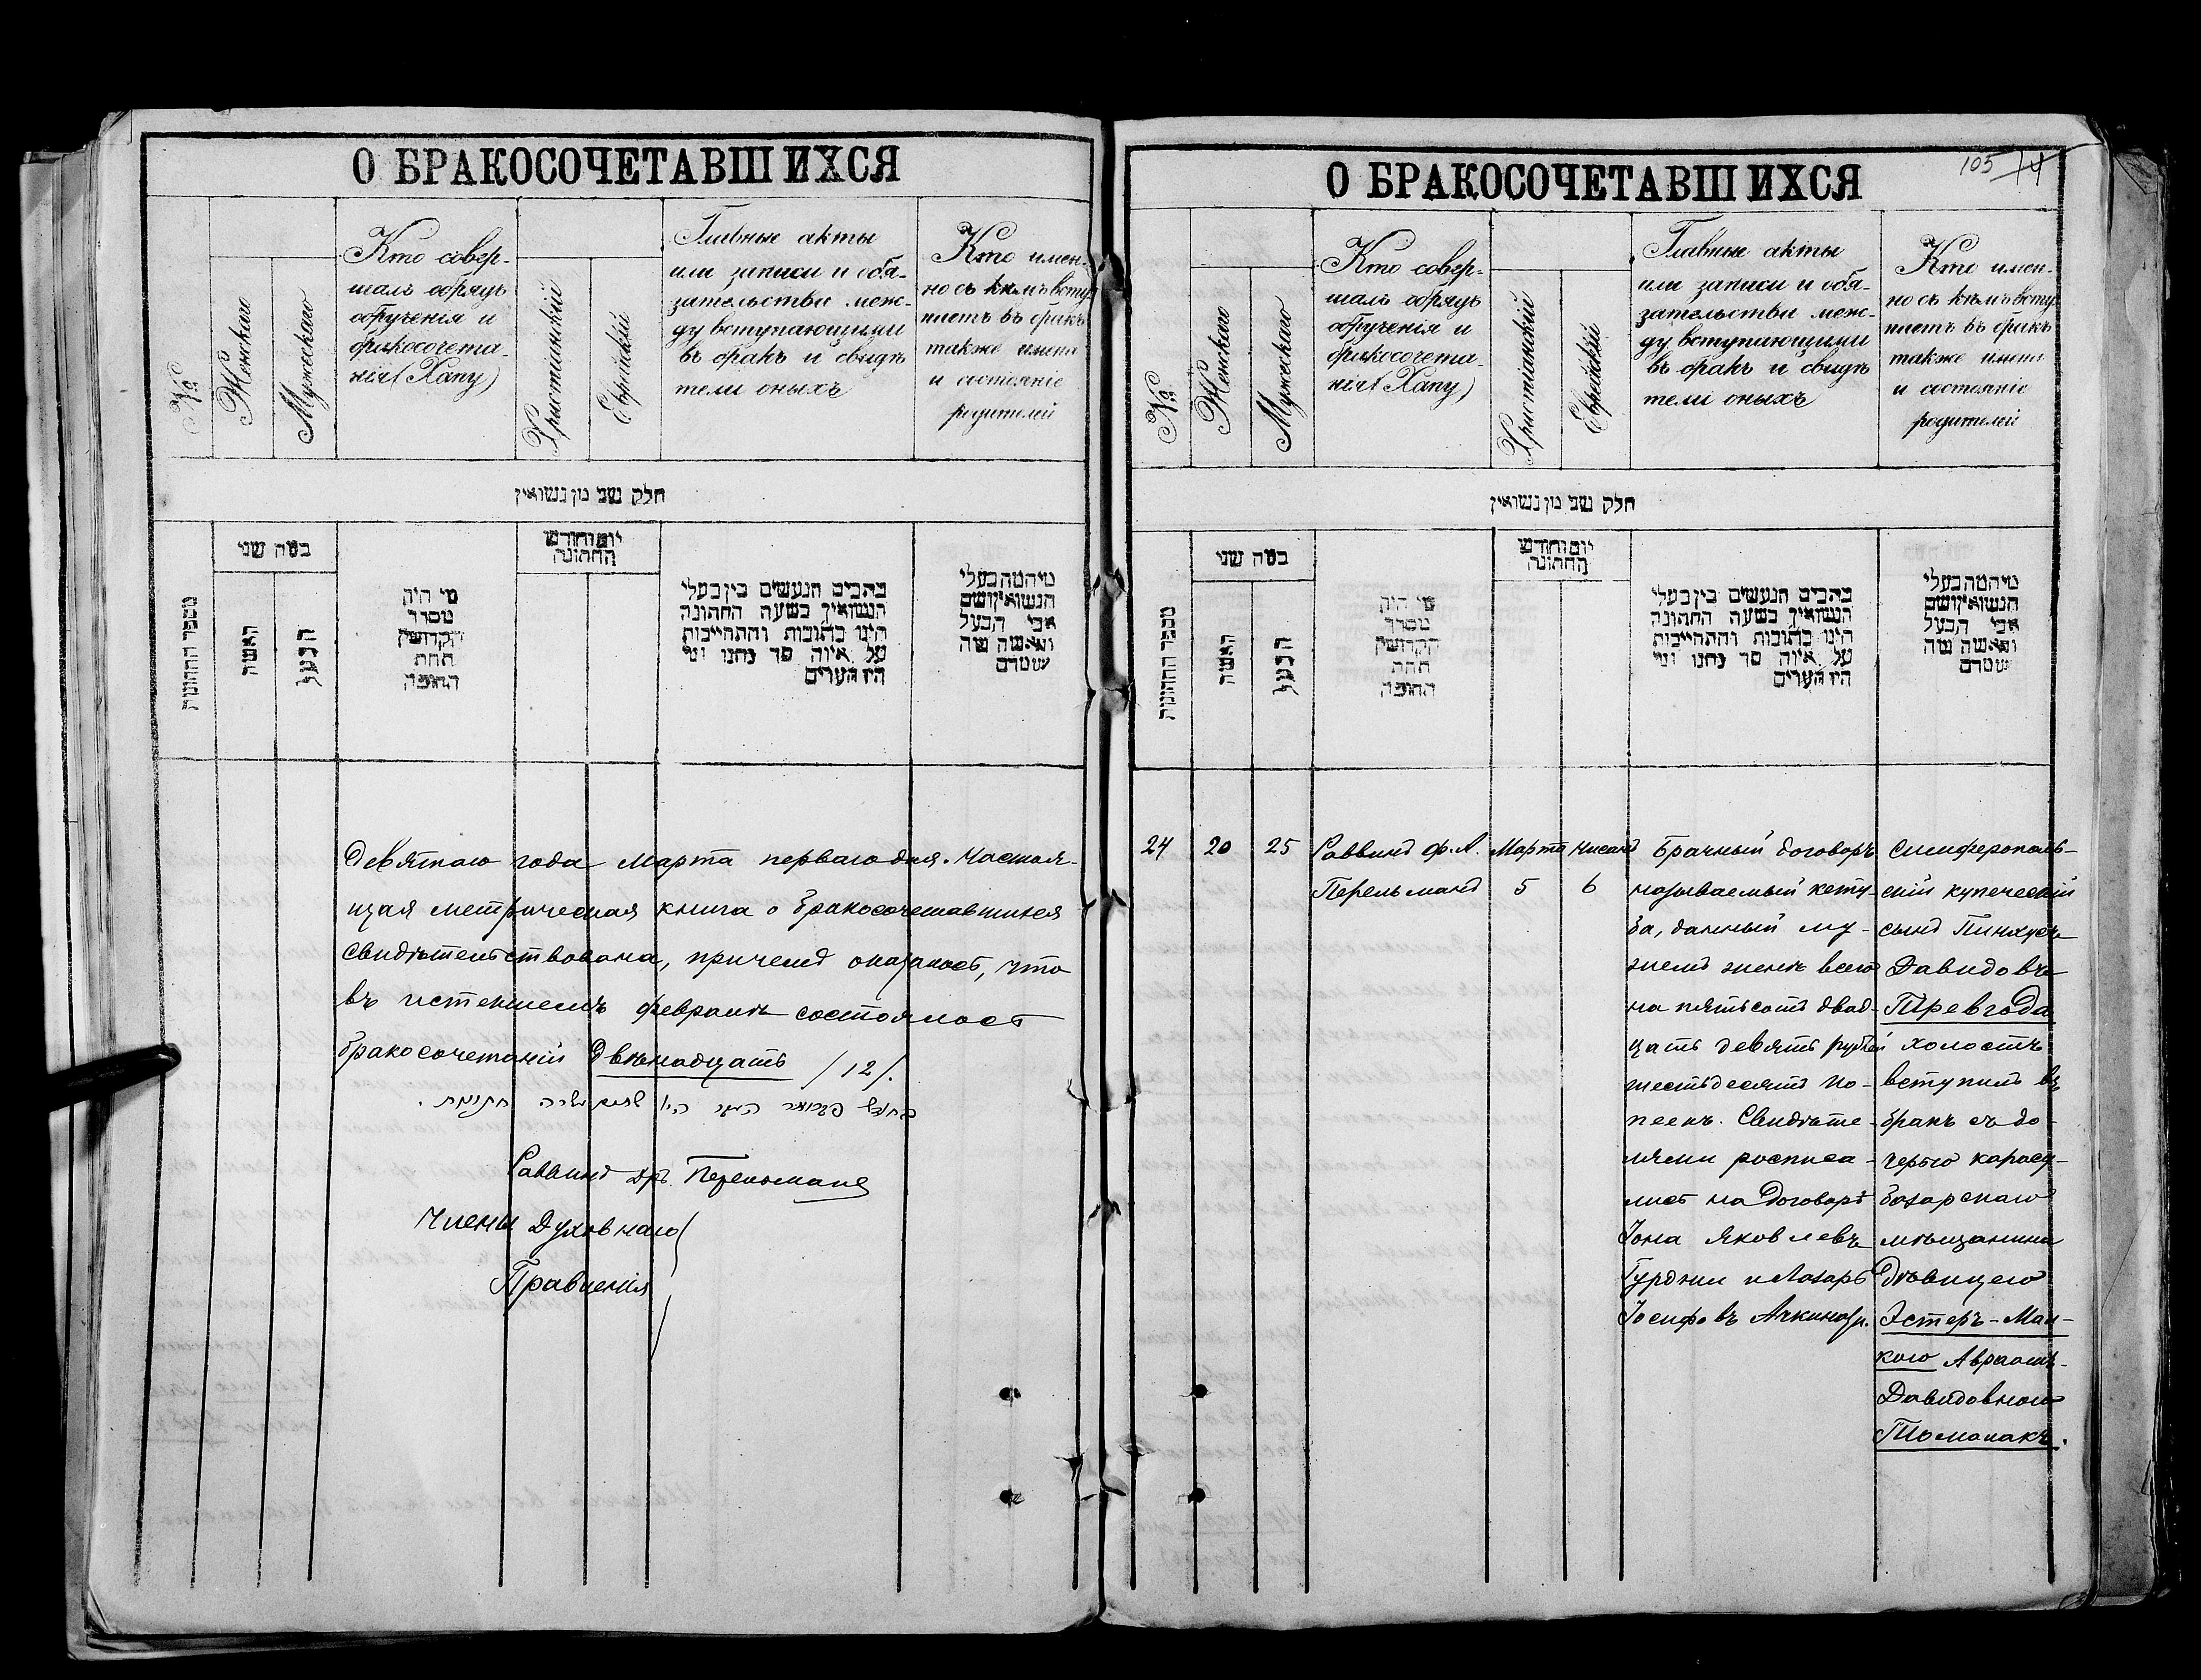 О БРАКОСОЧЕТАВШИХСЯ
№
Женскаго
Мужескаго
Кто совер-
шалъ обрядъ
обрученія и
бракосочета-
нія (Хапу)
Христіанскій
Еврейскій
Главные акты
или записи и обя-
зательства меж-
ду вступающими
въ бракъ и свидѣ
тели оныхъ
Кто имен-
но съ кѣмъ всту
паетъ въ бракъ
также имена
и состояніе
родителей
חלק שני מן נשואין
מספר החתונות
כמה שני
האשה
הבעל
מי היה
מסדר
הקדושין
תחת
החופה
יום וחודש
החתונה
בהכים הנעשים בין בעלי
הנשואין בשעה החתונה
היגו כתובות והתחייבות
על איזה סך נתנו ומי
היו הערים
מי המה בעלי
הנשואין ושם
אבי הבעל
והאשה מה
שמדם
девятаго года марта перваго дня. Настоя-
щая метрическая книга о бракосочетавшихся
свидѣтельствована, причемъ оказалось, что
въ истекшемъ февралѣ состоялось
бракосочетаній Двѣнадцать /12/.
בחודש פברואר היו חתונות.
Раввинъ Др. Перельманъ
Члены Духовнаго
Правленія
О БРАКОСОЧЕТАВШИХСЯ
105 74
№
Женскаго
Мужескаго
Кто совер-
шалъ обрядъ
обрученія и
бракосочета-
нія (Хапу)
Христіанскій
Еврейскій
Главные акты
или записи и обя-
зательства меж-
ду вступающими
въ бракъ и свидѣ
тели оныхъ
Кто имен-
но съ кѣмъ всту
паетъ въ бракъ
также имена
и состояніе
родителей
חלק שני מן נשואין
מספר החתונות
כמה שני
האשה
הבעל
מי היה
מסדר
הקדושין
תחת
החופה
יום וחודש
החתונה
בהכים הנעשים בין בעלי
הנשואין בשעה החתונה
היגו כתובות והתחייבות
על איזה סך נתנו ומי
היו הערים
מי המה בעלי
הנשואין ושם
אבי הבעל
והאשה מה
שמדם
24
20
25
Раввинъ Ф. А.
Перельманъ
Марта
5
Нисанъ
6
Брачный договоръ
называемый кету-
ба, данный му-
жемъ женѣ всего
на пятьсотъ двад-
цать девять рублей
шестьдесятъ ко-
пеекъ. Свидѣте-
лями росписа-
лись на Договорѣ
Іона Яковлевъ
Гурджи и Лазарь
Іосифовъ Ачкинази.
Симферополь-
скій купеческій
сынъ Пинхусъ
Давидовъ
Превгода
холостъ
вступилъ въ
бракъ съ до-
черью карасу-
базарскаго
мѣщанина
Дѣвицею
Эстеръ-Мал-
кою Авраамъ-
Давидовною
Тюмалакъ.